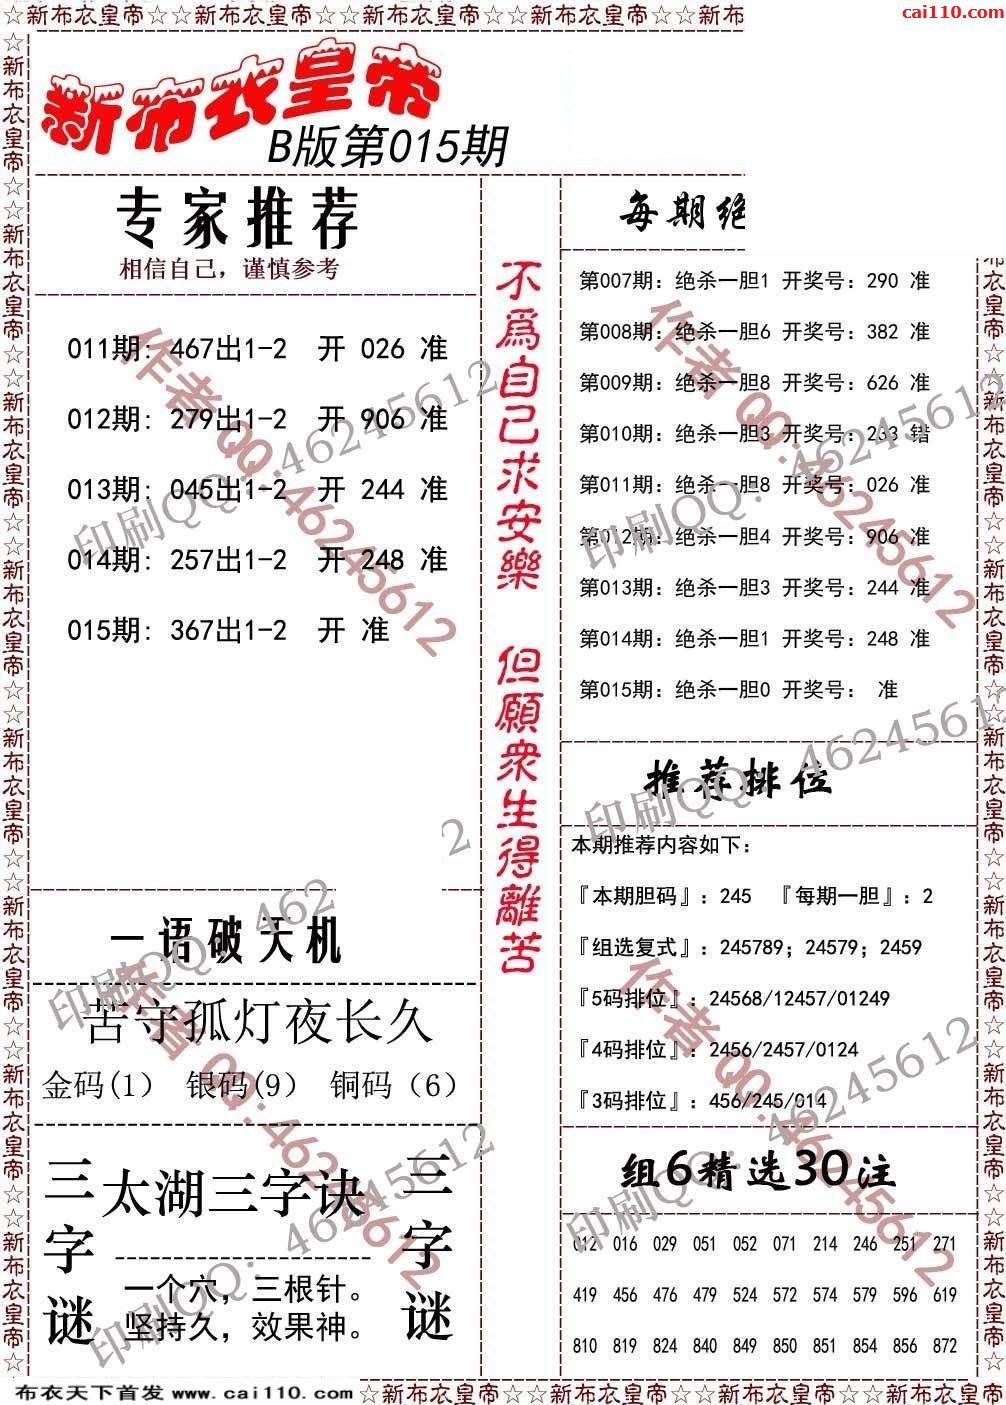 ☆新布衣皇帝☆☆新布衣皇帝☆☆新布衣皇帝☆☆新布衣皇帝☆☆新布
cai110.com
新布衣皇帝
B版第015期
专家推荐
相信自己，谨慎参考
011期: 467出1-2 开 026 准
012期: 279出1-2 开 906 准
013期: 045出1-2 开 244 准
014期: 257出1-2 开 248 准
015期: 367出1-2 开 准
一语破天机
苦守孤灯夜长久
金码(1) 银码(9) 铜码（6）
三字谜
太湖三字诀
一个穴，三根针。
坚持久，效果神。
三字谜
不爲自己求安樂 但願衆生得離苦
每期绝
第007期：绝杀一胆1 开奖号：290 准
第008期：绝杀一胆6 开奖号：382 准
第009期：绝杀一胆8 开奖号：626 准
第010期：绝杀一胆3 开奖号：233 错
第011期：绝杀一胆8 开奖号：026 准
第012期：绝杀一胆4 开奖号：906 准
第013期：绝杀一胆3 开奖号：244 准
第014期：绝杀一胆1 开奖号：248 准
第015期：绝杀一胆0 开奖号： 准
推荐排位
本期推荐内容如下：
『本期胆码』：245 『每期一胆』：2
『组选复式』：245789；24579；2459
『5码排位』：24568/12457/01249
『4码排位』：2456/2457/0124
『3码排位』：456/245/014
组6精选30注
012 016 029 051 052 071 214 246 251 271
419 456 476 479 524 572 574 579 596 619
810 819 824 840 849 850 851 854 856 872
作者QQ：46245612
印刷QQ：46245612
布衣天下首发 www.cai110.com ☆新布衣皇帝☆☆新布衣皇帝☆☆新布衣皇帝☆☆新布衣皇帝☆